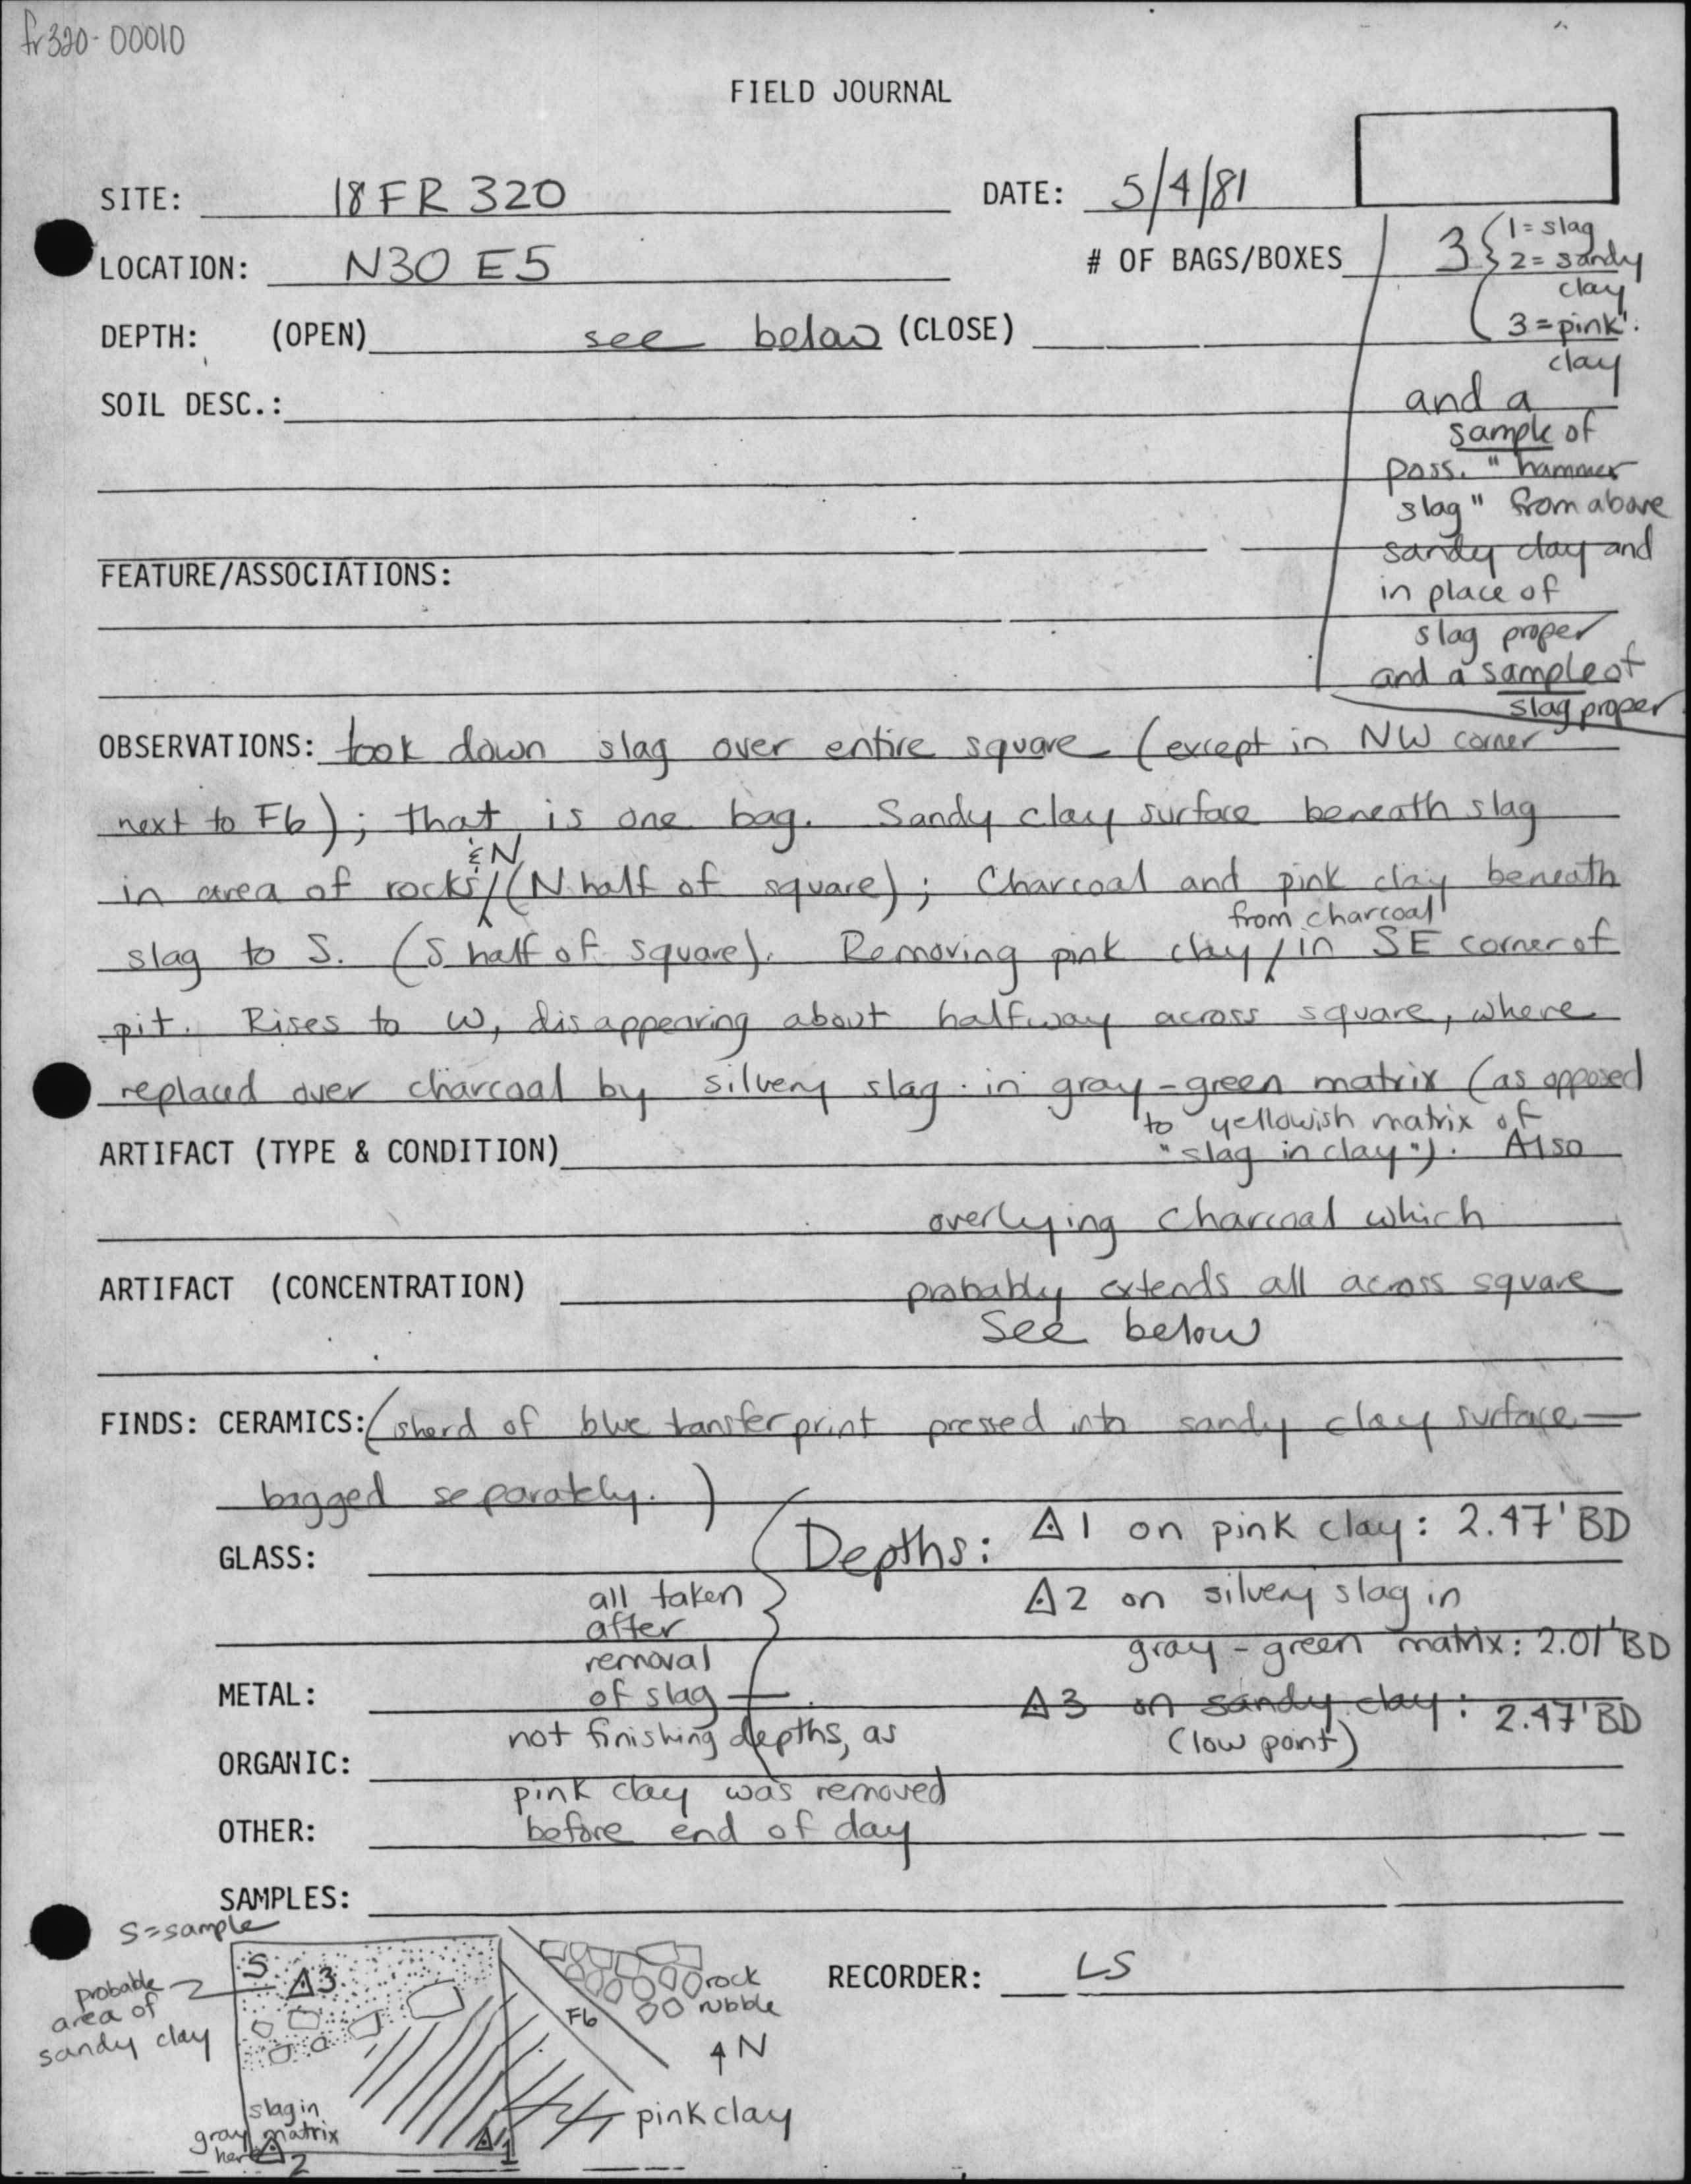 fr320-00010
FIELD JOURNAL
SITE: 18FR 320
DATE: 5/4/81
LOCATION: N30 E5
# OF BAGS/BOXES 3
1 = slag
2 = sandy
clay
3 = pink
clay
and a
sample of
poss. "hammer
slag" from above
sandy clay and
in place of
slag proper
and a sample of
slag proper
DEPTH: (OPEN) see below (CLOSE)
SOIL DESC.:
FEATURE/ASSOCIATIONS:
OBSERVATIONS: took down slag over entire square (except in NW corner
next to F6); that is one bag. Sandy clay surface beneath slag
& N
in area of rocks/(N half of square); Charcoal and pink clay beneath
from charcoal
slag to S. (S half of square). Removing pink clay / in SE corner of
pit. Rises to W, disappearing about halfway across square, where
replaced over charcoal by silvery slag in gray-green matrix (as opposed
to yellowish matrix of
ARTIFACT (TYPE & CONDITION) "slag in clay"). Also
overlying charcoal which
ARTIFACT (CONCENTRATION) probably extends all across square
See below
FINDS: CERAMICS: (sherd of blue tansfer print pressed into sandy clay surface—
bagged separately.)
Depths: △1 on pink clay: 2.47' BD
GLASS:
△2 on silvery slag in
gray-green matrix: 2.01' BD
all taken
after
removal
of slag
METAL:
△3 on sandy clay: 2.47' BD
(low point)
not finishing depths, as
ORGANIC:
pink clay was removed
OTHER: before end of day
SAMPLES:
S = sample
RECORDER: LS
S △3
probable
area of
sandy clay
rock
rubble
F6
N
slag in
gray matrix
here △2
△1
pink clay